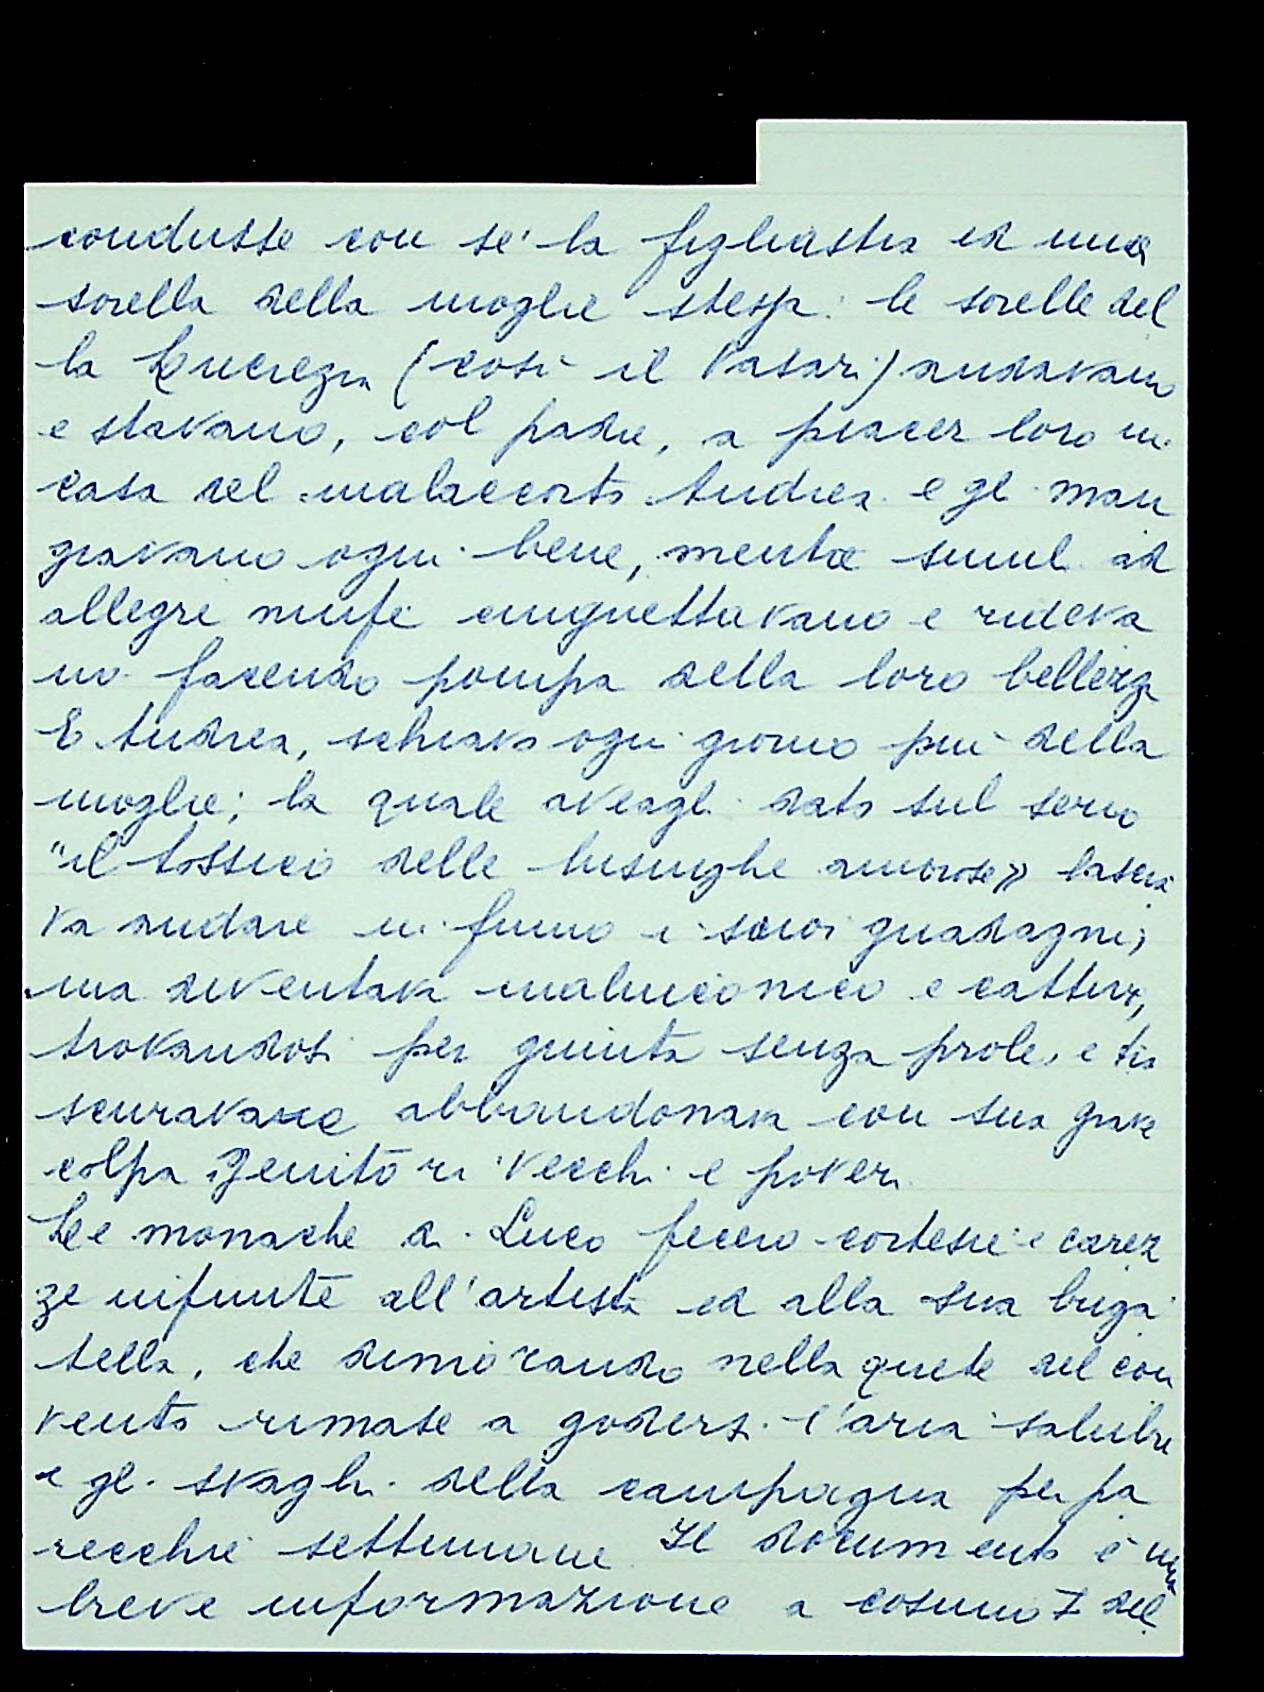 condusse con sé la figliastra ed una
sorella della moglie stessa: le sorelle del
la Lucrezia (così il Vasari) andavano
e stavano, col padre, a piacer loro in
casa del malaccorto Andrea e gli man
giavano ogni bene, mentre simili ad
allegre ninfe cinguettavano e rideva
no facendo pompa della loro bellezza
E Andrea, schiavo ogni giorno più della
moglie; la quale aveagli dato sul serio
"il tossico delle lusinghe amorose» lascia
va andare in fumo i suoi guadagni;
ma diventava malinconico e cattivo,
trovandosi per giunta senza prole, e tra
scurava e abbandonava con sua grave
colpa i genitori vecchi e poveri.
Le monache di Luco fecero cortesie e carez
ze infinite all'artista ed alla sua briga
tella, che dimorando nella quiete del con
vento rimase a godersi l'aria salubre
e gli svaghi della campagna per pa
recchie settimane. Il documento è una
breve informazione a Cosimo I del